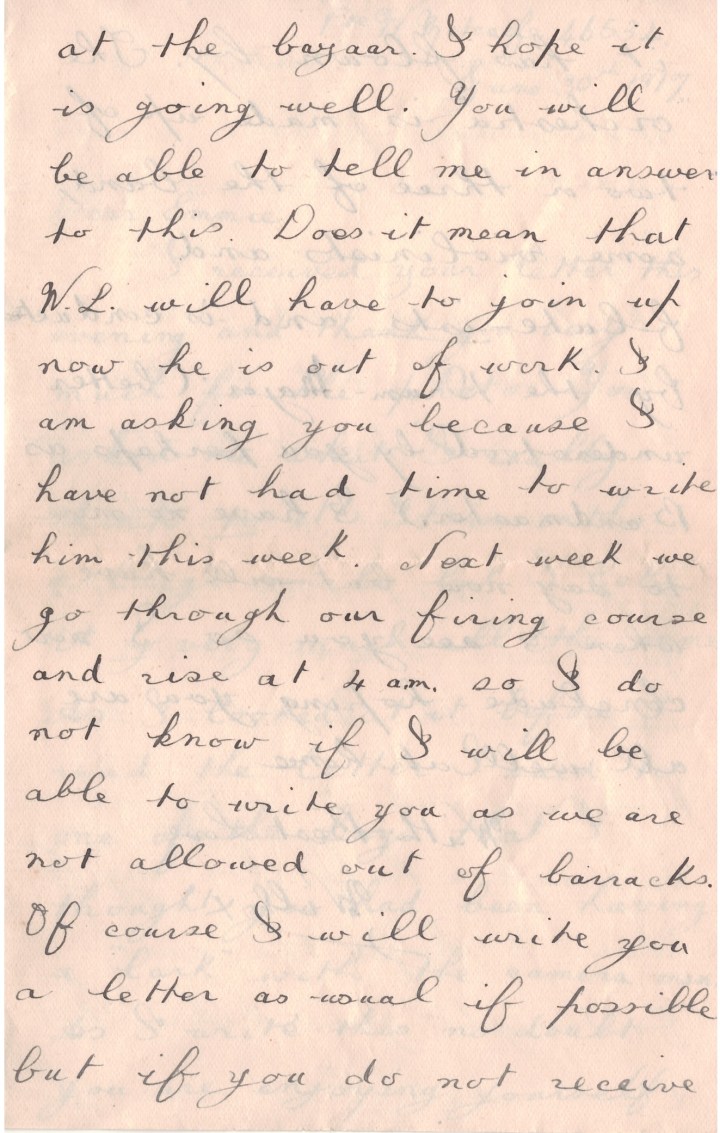 at the bazaar. I hope it
is going well. You will
be able to tell me in answer
to this. Does it mean that
W.L. will have to join up
now he is out of work. I
am asking you because I
have not had time to write
him this week. Next week we
go through our firing course
and rise at 4 a.m. so I do
not know if I will be
able to write you as we are
not allowed out of barracks.
Of course I will write you
a letter as usual if possible
but if you do not receive